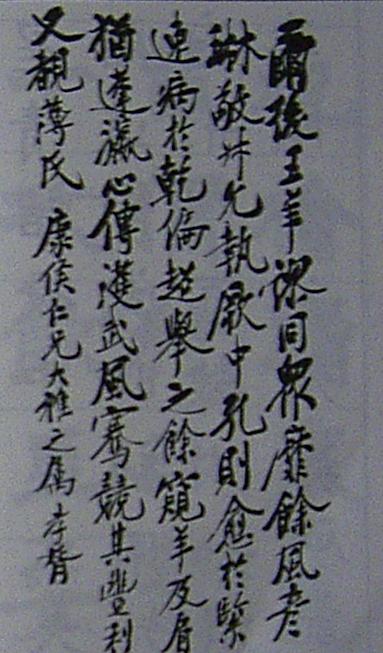 爾後王羊深同眾靡餘風彥
琳敬叔允執厥中孔則愈於緊
速病於乾偏超舉之餘窺羊及肩
猶蓬瀛心傳漢武風騫競其豐利
又觀薄氏 康侯仁兄大雅之屬 孝胥